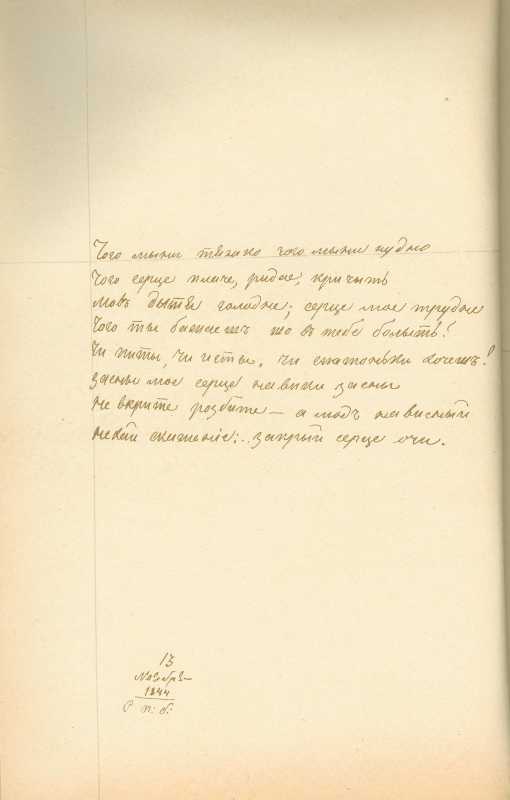 Чого мыни тяжко чого мыни нудно
Чого серце плаче, рыдае, кричить
Мовъ дытя голодне; серце мое трудне
Чого ты бажаешъ що въ тебе болыть!
Чи пыты, чи исты, чи спатоньки хочешъ!
засны мое серце навики засны
не вкрите розбите — а людъ нависный
нехай скаженіе... закрый серце очи.
13
Ноября
1844
С П: б: